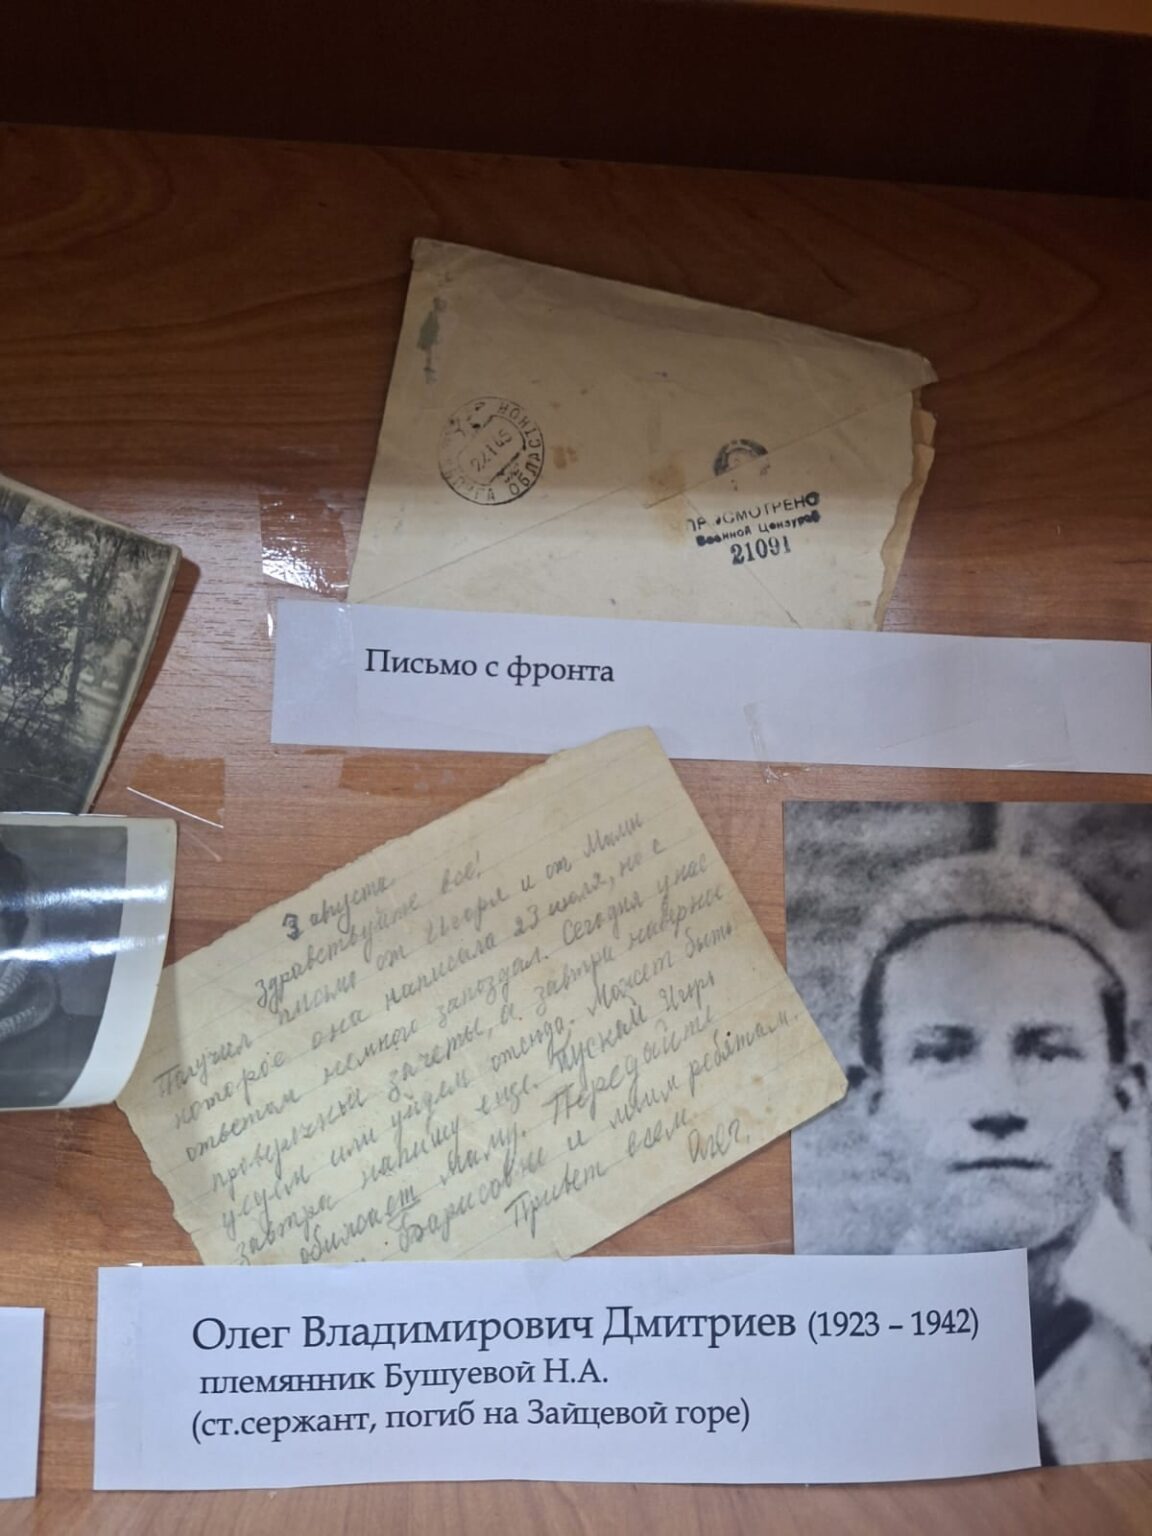 КАЛУГА ОБЛАСТНОЙ
22 1 45
ПРОСМОТРЕНО
Военной Цензурой
21091
Письмо с фронта
3 августа
Здравствуйте все!
Получил письмо от Игоря и от Мили
которое она написала 23 июля, но с
ответом немного запоздал. Сегодня у нас
проверочный зачеты, а завтра наверное
уедем или уйдем отсюда. Может быть
завтра напишу еще. Пускай Игорь
обнимает маму. Передайте
Борисовне и моим ребятам.
Привет всем.
Олег.
Олег Владимирович Дмитриев (1923 – 1942)
племянник Бушуевой Н.А.
(ст.сержант, погиб на Зайцевой горе)